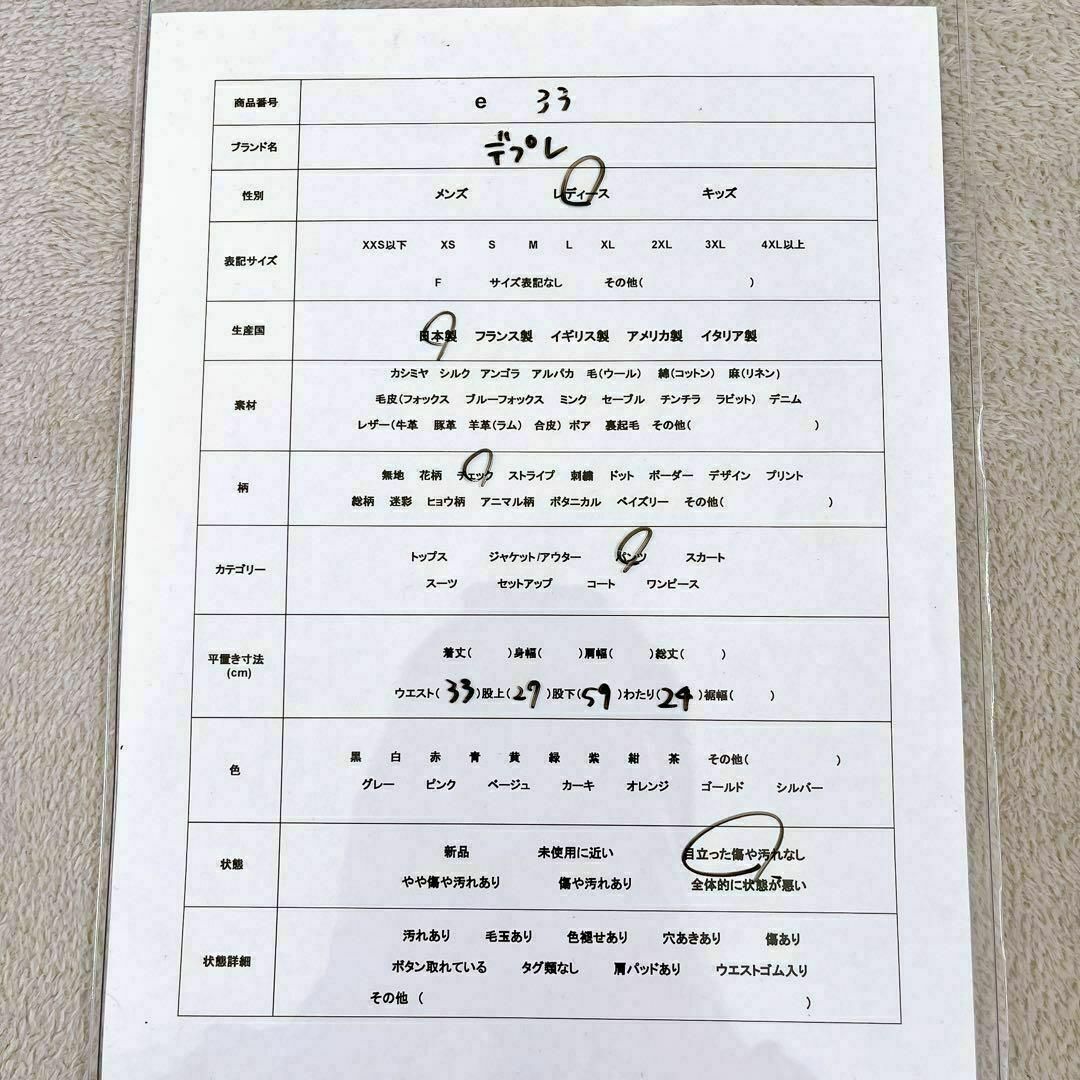 商品番号 e 33
ブランド名 デプレ
性別 メンズ レディース キッズ
表記サイズ
XXS以下 XS S M L XL 2XL 3XL 4XL以上
F サイズ表記なし その他( )
生産国 日本製 フランス製 イギリス製 アメリカ製 イタリア製
素材
カシミヤ シルク アンゴラ アルパカ 毛(ウール) 綿(コットン) 麻(リネン)
毛皮(フォックス ブルーフォックス ミンク セーブル チンチラ ラビット) デニム
レザー(牛革 豚革 羊革(ラム) 合皮) ボア 裏起毛 その他( )
柄
無地 花柄 チェック ストライプ 刺繍 ドット ボーダー デザイン プリント
総柄 迷彩 ヒョウ柄 アニマル柄 ボタニカル ペイズリー その他( )
カテゴリー
トップス ジャケット/アウター パンツ スカート
スーツ セットアップ コート ワンピース
平置き寸法
(cm)
着丈( )身幅( )肩幅( )総丈( )
ウエスト(33)股上(29)股下(59)わたり(24)裾幅( )
色
黒 白 赤 青 黄 緑 紫 紺 茶 その他( )
グレー ピンク ベージュ カーキ オレンジ ゴールド シルバー
状態
新品 未使用に近い 目立った傷や汚れなし
やや傷や汚れあり 傷や汚れあり 全体的に状態が悪い
状態詳細
汚れあり 毛玉あり 色褪せあり 穴あきあり 傷あり
ボタン取れている タグ類なし 肩パッドあり ウエストゴム入り
その他 ( )